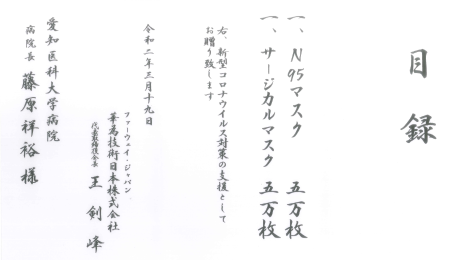 目録
一、N95マスク 五万枚
一、サージカルマスク 五万枚
右、新型コロナウイルス対策の支援として
お贈り致します
令和二年三月十九日
ファーウェイ・ジャパン
華為技術日本株式会社
代表取締役会長 王剣峰
愛知医科大学病院
病院長 藤原祥裕様